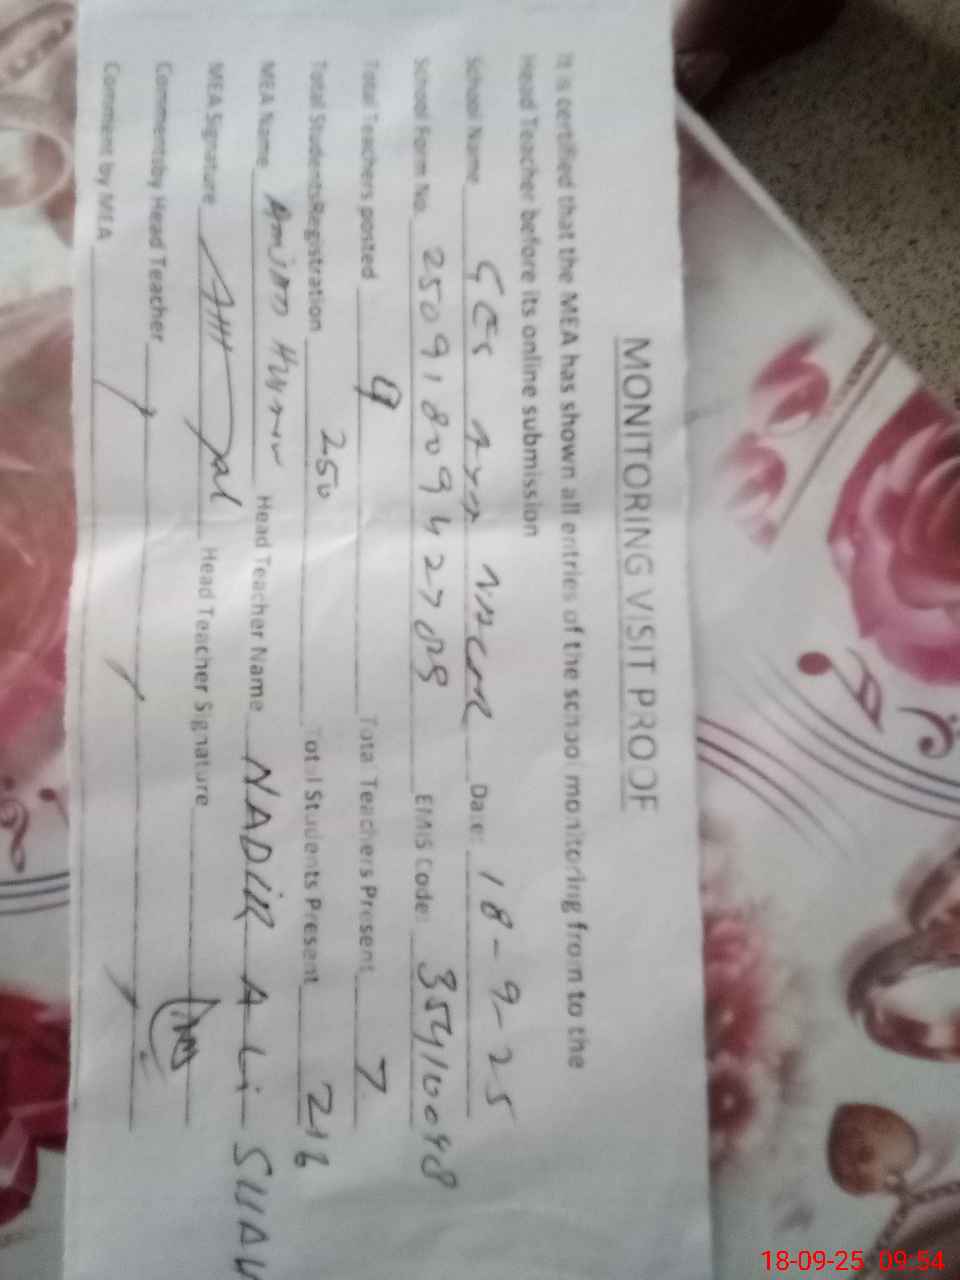 MONITORING VISIT PROOF
It is certified that the MEA has shown all entries of the school monitoring from to the
Head Teacher before its online submission
School Name GES Date: 18-9-25
School Form No. 2509180942709 EMIS Code: 35410048
Total Teachers posted 9 Total Teachers Present 7
Total Students Registration 250 Total Students Present 216
MEA Name Amjad Head Teacher Name NADIR ALi
MEA Signature Head Teacher Signature
Comment by Head Teacher
Comment by MEA
18-09-25 09:54